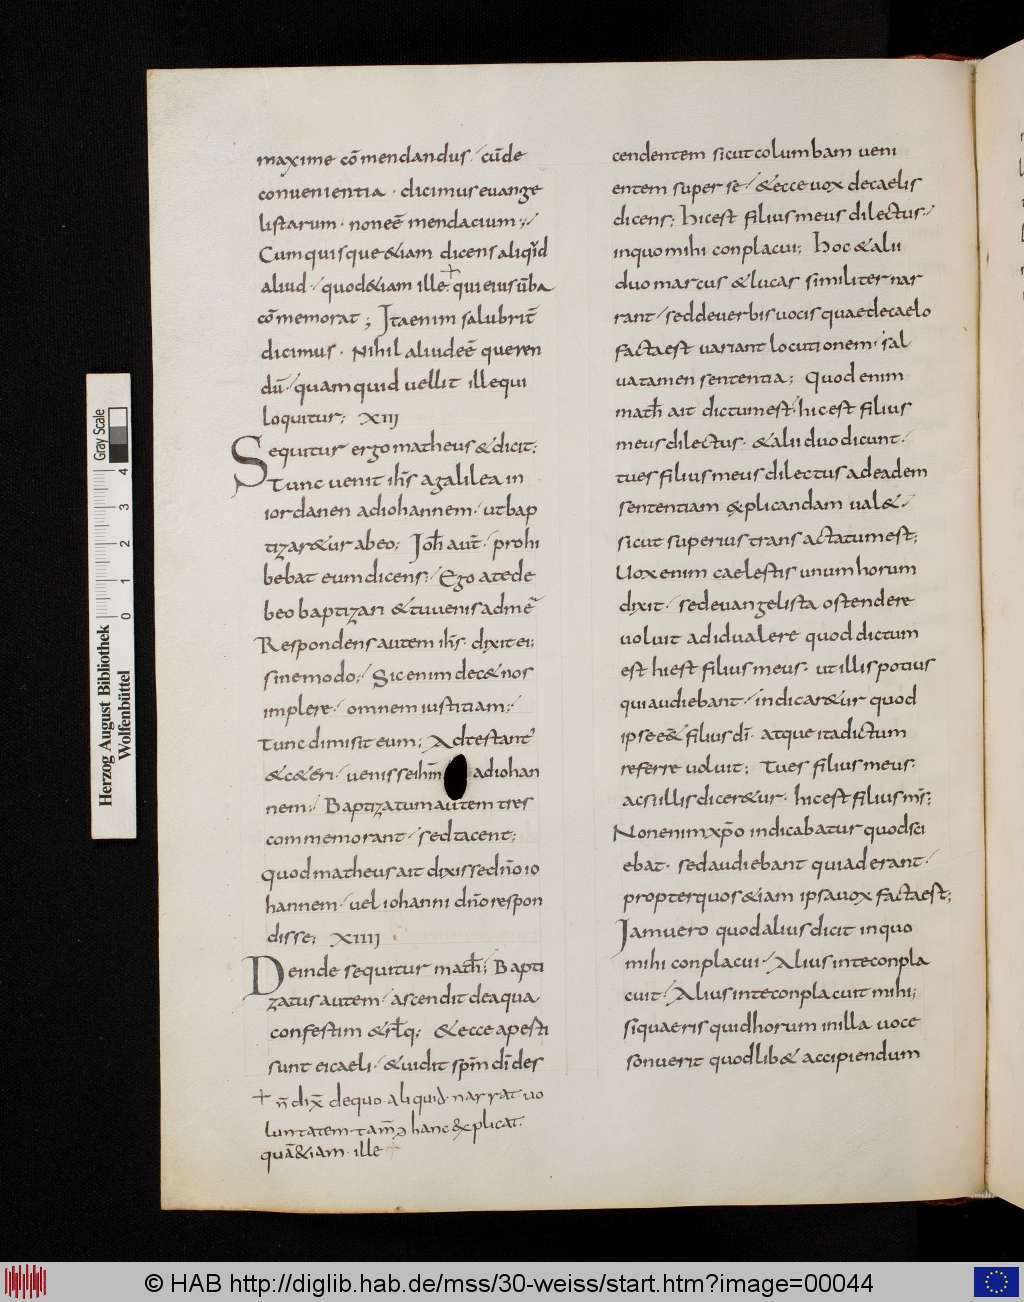 maxime cō mendandus / cūde
convenientia · dicimus euange
listarum · non eē mendacium ;/
Cum quisque &iam dicens aliq'd
aliud / quod &iam ille + qui eius ūba
cō memorat ; Ita enim salubrit̄
dicimus · Nihil aliud eē queren
dū / quam quid vellit ille qui
loquitur ; XIII
Sequitur ergo matheus & dicit ;
Tunc uenit ih̄s a galilea in
iordanen ad iohannem / ut bap
tizar&ur ab eo ; Joh̄ aut̄ / prohi
bebat eum dicens ;/ Ego a te de
beo baptizari & tu uenis ad mē
Respondens autem ih̄s · dixit ei ;
sine modo ;/ Sic enim dec& nos
implere / omnem iustitiam ;/
Tunc dimisit eum ; Adtestant'
&c&eri / uenisse ihm̄ ad iohan
nem ;/ Baptizatum autem tres
commemorant / sed tacent ;
quod matheus ait dixisse dn̄o io
hannem / uel iohanni dn̄o respon
disse ; XIIII
Deinde sequitur math̄ ; Bapti
zatus autem / ascendit de aqua
confestim & rł q ; & ecce apesti
sunt ei caeli / & uidit spm̄ dī des
+ n̄ dix̄ de quo · aliquid · narrat uo
luntatem · tam̄ɔ hanc &plicat ·
quā &iam · ille +
cendentem sicut columbam ueni
entem super se / & ecce uox de caelis
dicens ; hic est filius meus dilectus /
in quo mihi conplacui ; hoc & alii
duo marcus & lucas similiter nar
rant / sed de uerbis uocis quae de caelo
facta est uariant locutionem · sal
ua tamen sententia ; Quod enim
math̄ ait dictum est / hic est filius
meus dilectus · & alii duo dicunt /
tu es filius meus dilectus ad eadem
sententiam &plicandam ual& /
sicut superius transactatum est ;
Uox enim caelestis unum horum
dixit / sed euangelista ostendere
uoluit ad id ualere quod dictum
est hi est filius meus · ut illis potius
qui audiebant / indicar&ur quod
ipse e& filius dī · atque ita dictum
referre uoluit ; Tu es filius meus ·
ac si illis dicer&ur · hic est filius m̄s ;
Non enim xp̄o indicabatur quod sci
ebat · sed audiebant qui aderant /
propter quos &iam ipsa uox facta est ;
Jam uero quod alius dicit in quo
mihi conplacui / Alius in te conpla
cuit / Alius in te conplacuit mihi ;
si quaeris quid horum in illa uoce
sonuerit quod lib& accipiendum
Herzog August Bibliothek
Wolfenbüttel
0 1 2 3 4
Gray Scale
© HAB http://diglib.hab.de/mss/30-weiss/start.htm?image=00044